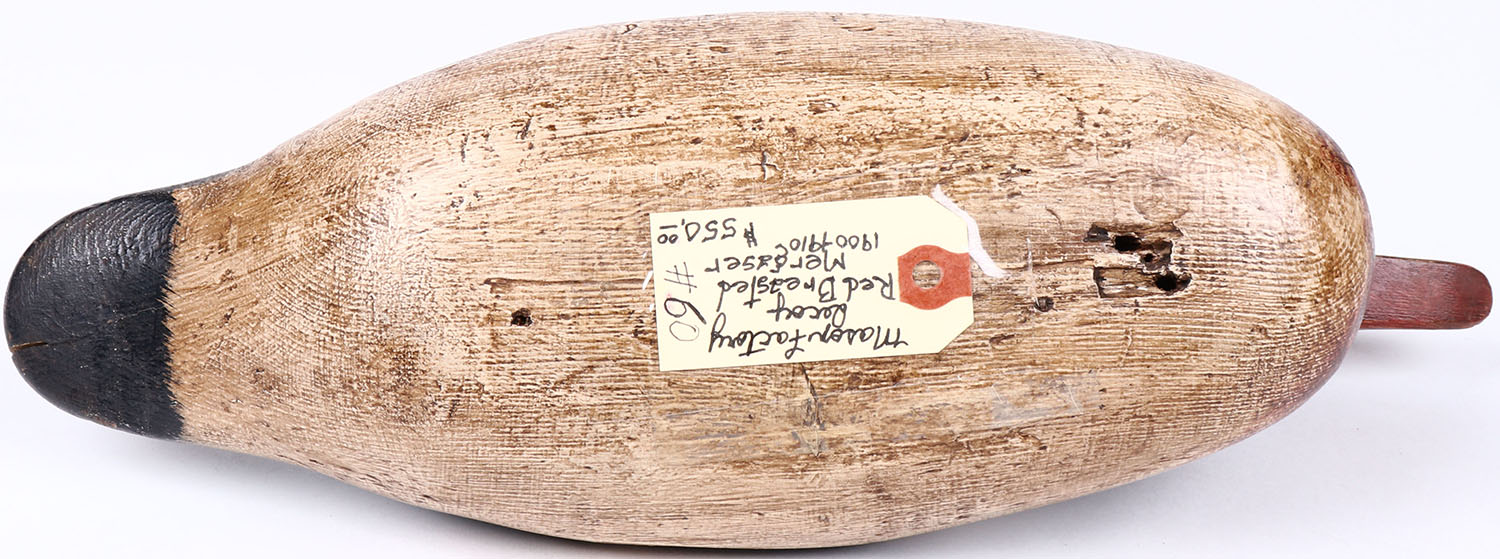 Mason Factory
Decoy
Red Breasted
Merganser
1900-1910c
$550.00
#60